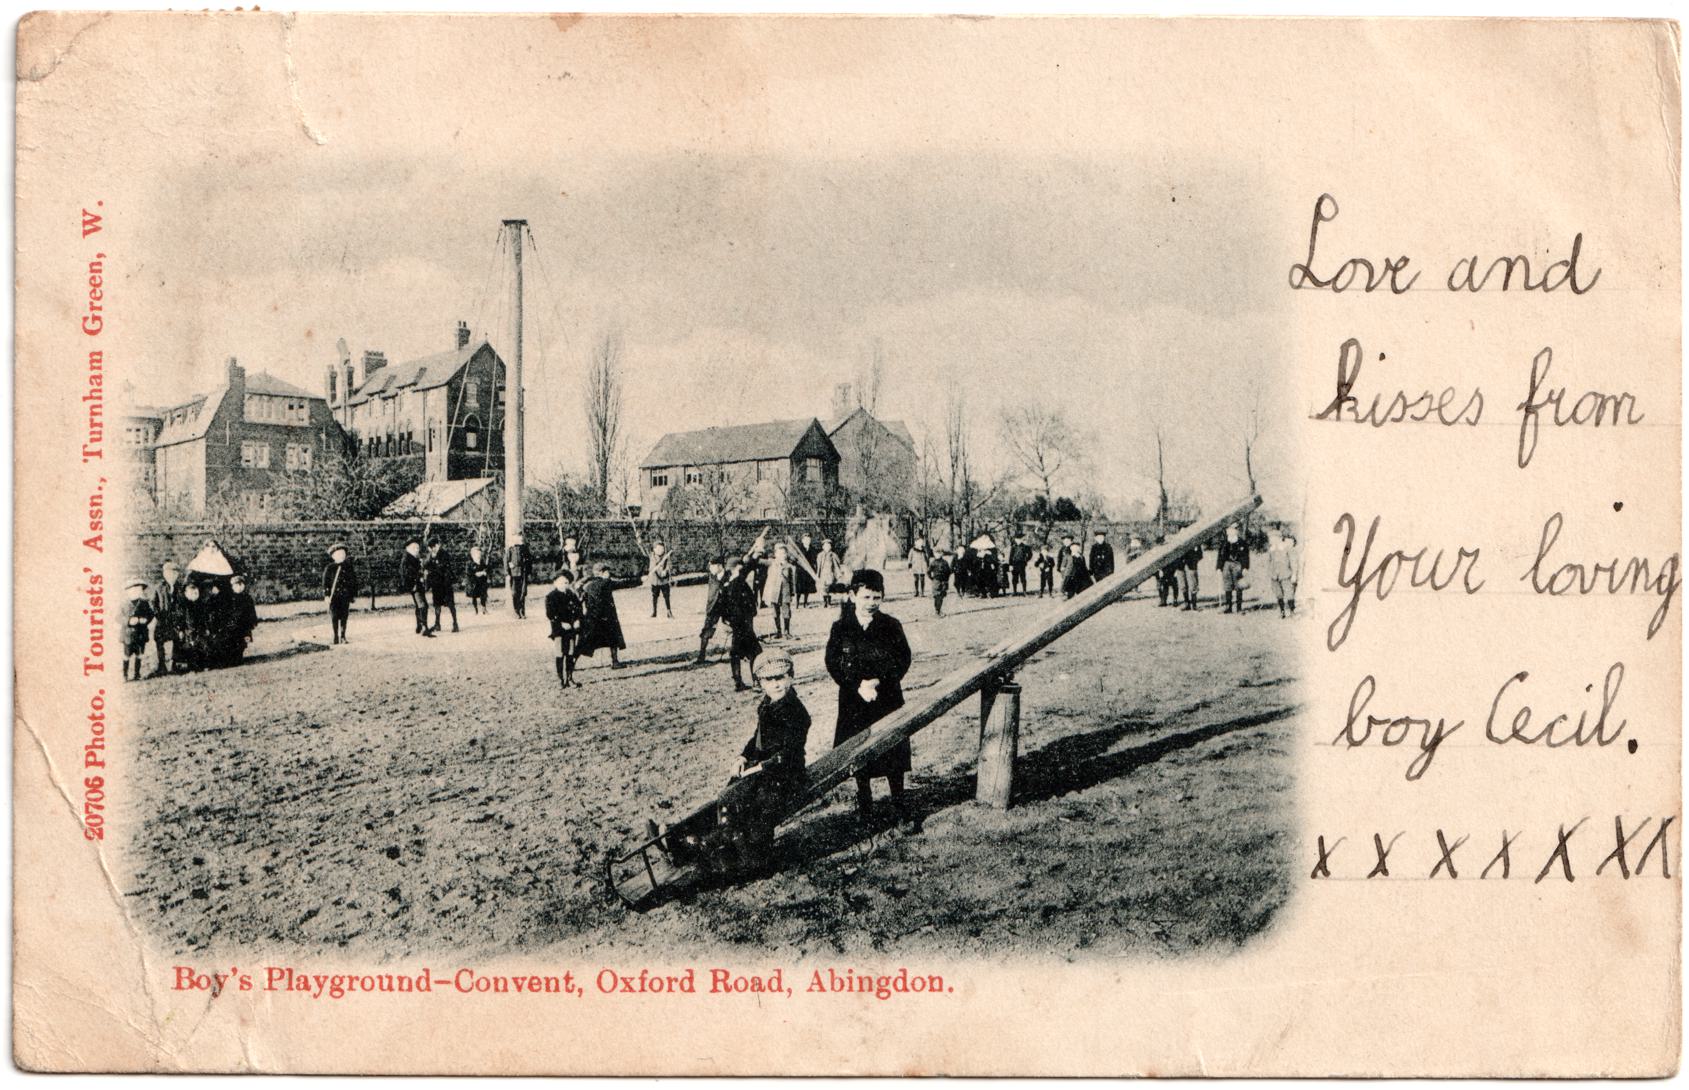 20706 Photo. Tourists' Assn., Turnham Green, W.
Boy's Playground-Convent, Oxford Road, Abingdon.
Love and
kisses from
Your loving
boy Cecil.
x x x x x x x